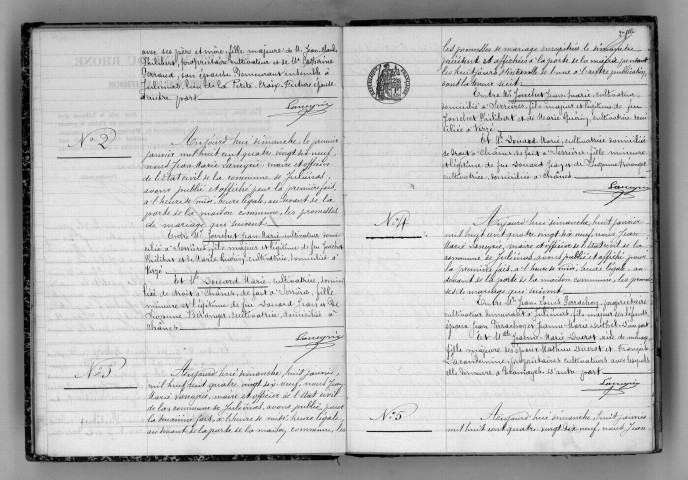 avec ses père et mère, fille majeure de M. Jean Marie
propriétaire cultivateur et de Me Catherine
son épouse, demeurant ensemble à
Juliénas, lieu de la Petite Croix. Future épouse
d'autre part
Laneyrie
No 2
Aujourd'hui dimanche, le premier
janvier mil huit cent quatre vingt dix neuf,
nous Jean Marie Laneyrie, maire et officier
de l'Etat civil de la commune de Juliénas,
avons publié et affiché pour la première fois,
à l'heure de midi, heure légale, au devant de la
porte de la maison commune, les promesses
de mariage qui suivent
Entre Mr Jonchet Jean Marie cultivateur domi-
cilié à Serrières, fils majeur et légitime de feu Jonchet
Philibert et de Marie cultivatrice, domiciliée à
Verzé
Et Me Douard Marie, cultivatrice, domici-
liée de droit à Chânes, de fait à fille
mineure et légitime de feu Douard Jean et de
cultivatrice, domiciliée à
Chânes
Laneyrie
No 3
Aujourd'hui dimanche, huit janvier,
mil huit cent quatre vingt dix neuf, nous Jean
Marie Laneyrie, maire et officier de l'Etat civil
de la commune de Juliénas, avons publié, pour
la deuxième fois, à l'heure de midi, heure légale,
au devant de la porte de la maison commune, les
les promesses de mariage
présent et affichées à la porte de la mairie pendant
les huit jours d'intervalle de l'une à l'autre publication,
dont la teneur suit:
Entre Mr Jonchet Jean Marie, cultivateur,
domicilié à Serrières, fils majeur et légitime de feu
Jonchet Philibert et de Marie cultivatrice domi-
ciliée à Verzé
Et Me Douard Marie, cultivatrice domiciliée
de droit à Chânes, de fait à fille mineure
et légitime de feu Douard Jean et de
cultivatrice, domiciliée à Chânes
Laneyrie
No 4
Aujourd'hui dimanche, huit janvier
mil huit cent quatre vingt dix neuf, nous Jean
Marie Laneyrie, maire et officier de l'Etat civil de la
commune de Juliénas, avons publié et affiché pour
la première fois, à l'heure de midi, heure légale, au-
devant de la porte de la maison commune, les promes-
ses de mariage qui suivent
Entre Mr Jean Louis propriétaire
cultivateur demeurant à Juliénas, fils majeur des défunts
époux Jean et Jeanne Marie d'une part
Et Melle Marie Ducrot, sans profession,
fille majeure des époux Mathieu Ducrot et Françoise
propriétaires cultivateurs avec lesquels
elle demeure à d'autre part
Laneyrie
No 5
Aujourd'hui dimanche, huit janvier
mil huit cent quatre vingt dix neuf, nous Jean